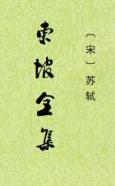 東坡全集
〔宋〕苏轼